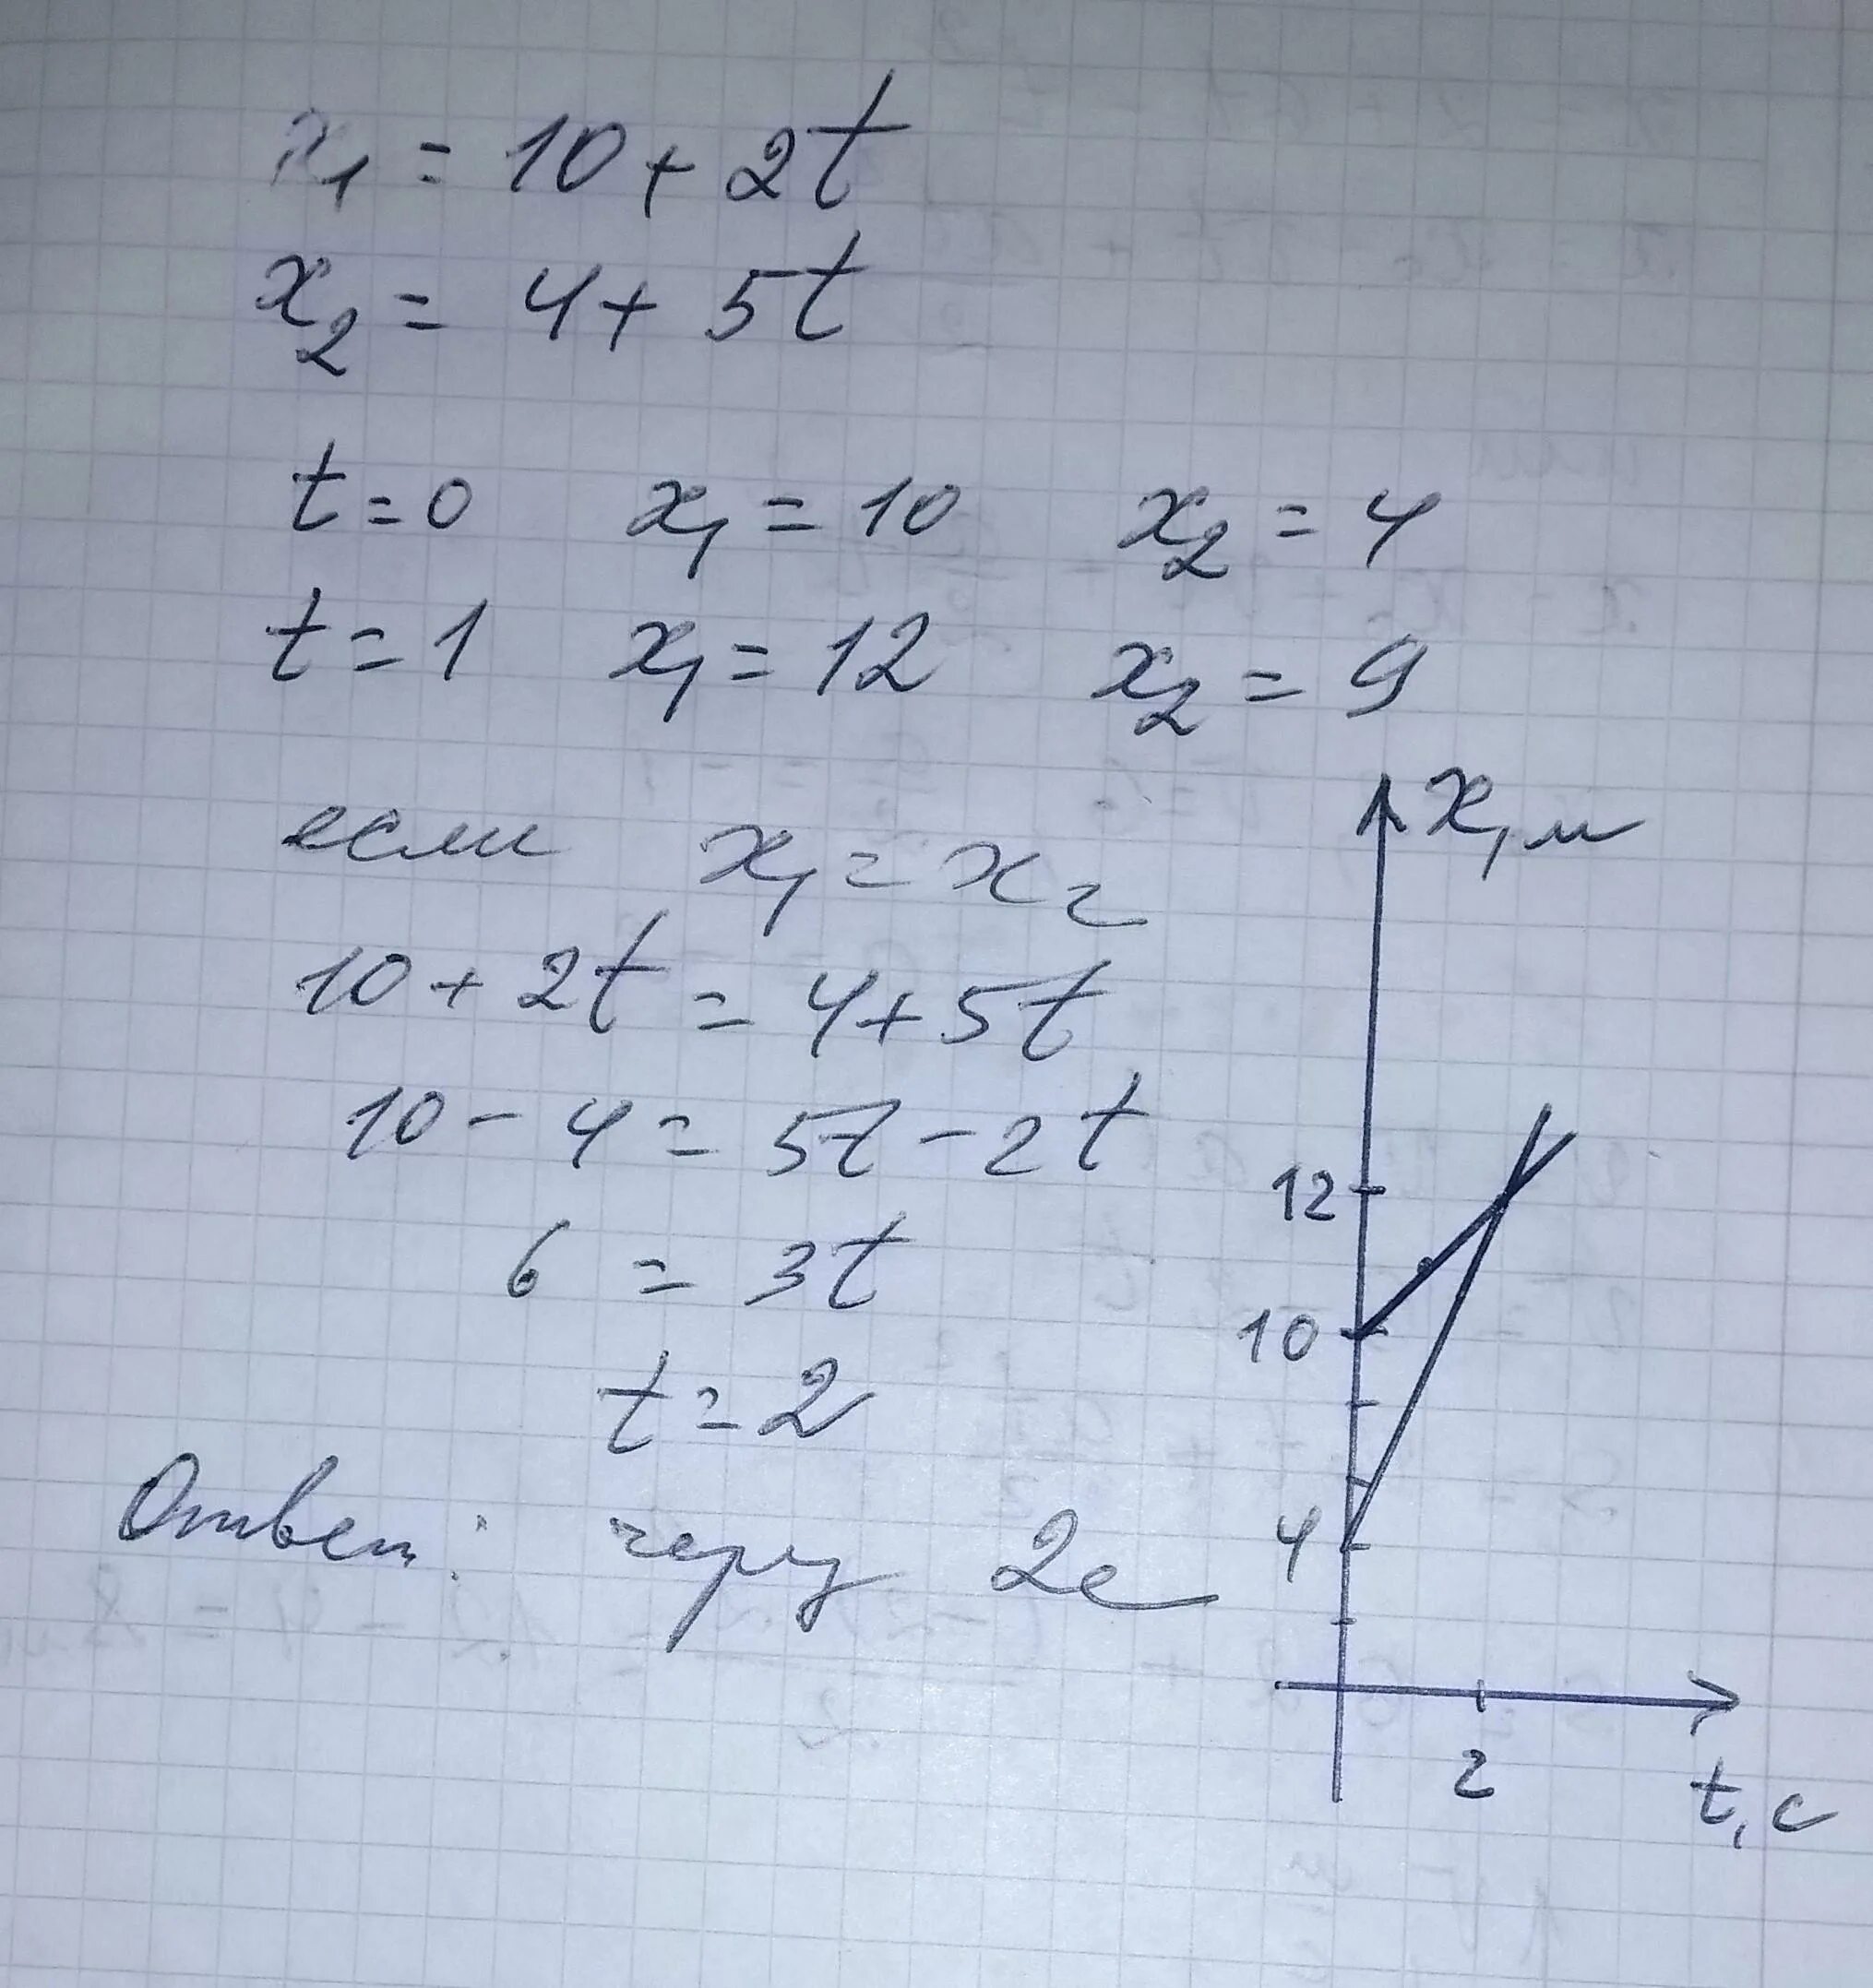 x₁ = 10 + 2t
x₂ = 4 + 5t
t = 0 x₁ = 10 x₂ = 4
t = 1 x₁ = 12 x₂ = 9
если x₁ = x₂
10 + 2t = 4 + 5t
10 - 4 = 5t - 2t
6 = 3t
t = 2
Ответ: через 2с
x, м
12
10
4
2
t, с